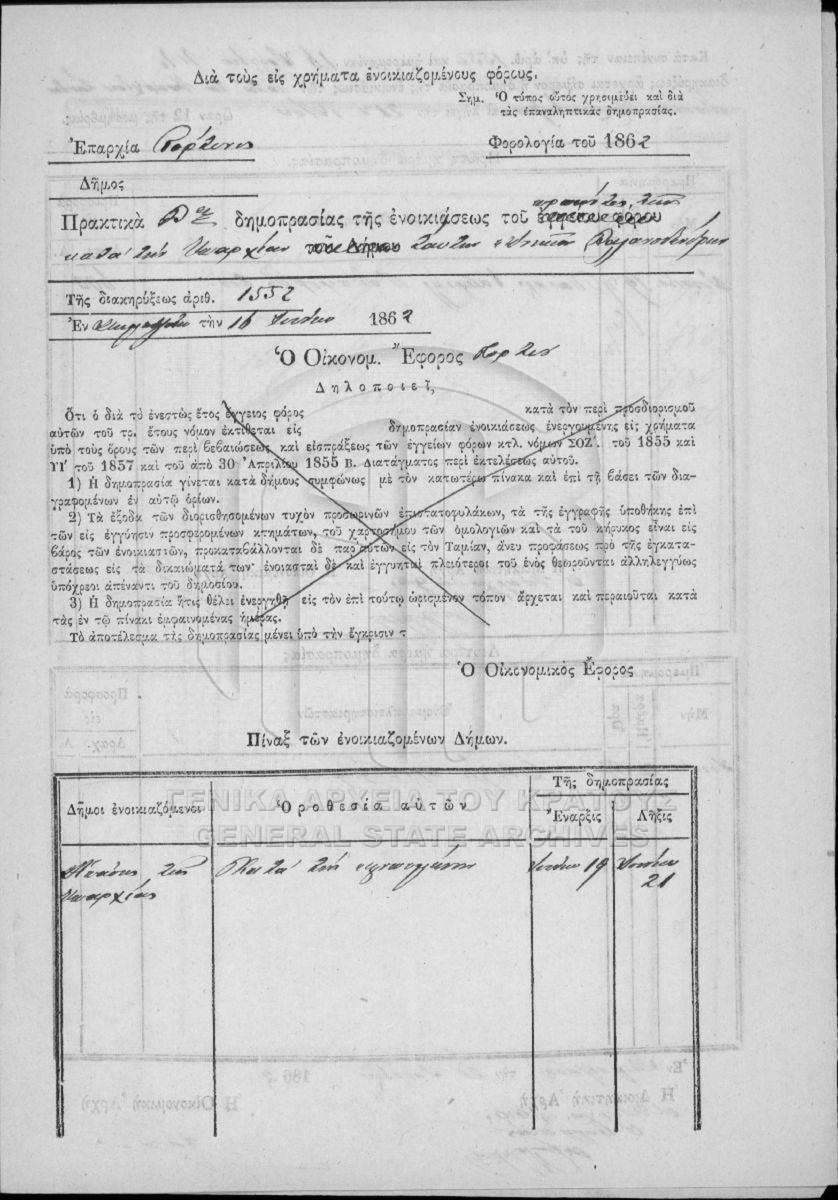 Διὰ τοὺς εἰς χρήματα ἐνοικιαζομένους φόρους.
Σημ. Ὁ τύπος οὗτος χρησιμεύει καὶ διὰ
τὰς ἐπαναληπτικὰς δημοπρασίας.
Ἐπαρχία Γόρτυνος
Φορολογία τοῦ 1862
Δῆμος
Πρακτικὰ δημοπρασίας τῆς ἐνοικιάσεως τοῦ ἐγγείου φόρου
κατὰ τὴν Ἐπαρχίαν τοῦ Δήμου ταύτην
Τῆς διακηρύξεως ἀριθ. 1552
Ἐν τὴν 16 Ἰουνίου 1862
Ὁ Οἰκονομ. Ἔφορος Γόρτυνος
Δηλοποιεῖ,
Ὅτι ὁ διὰ τὸ ἐνεστὼς ἔτος ἔγγειος φόρος κατὰ τὸν περὶ προσδιορισμοῦ
αὐτῶν τοῦ τρ. ἔτους νόμον ἐκτίθεται εἰς δημοπρασίαν ἐνοικιάσεως ἐνεργουμένης εἰς χρήματα
ὑπὸ τοὺς ὅρους τῶν περὶ βεβαιώσεως καὶ εἰσπράξεως τῶν ἐγγείων φόρων κτλ. νόμων ΣΟΖ΄. τοῦ 1855 καὶ
ΥΙ΄ τοῦ 1857 καὶ τοῦ ἀπὸ 30 Ἀπριλίου 1855 Β. Διατάγματος περὶ ἐκτελέσεως αὐτοῦ.
1) Ἡ δημοπρασία γίνεται κατὰ δήμους συμφώνως μὲ τὸν κατωτέρω πίνακα καὶ ἐπὶ τῇ βάσει τῶν δια-
γραφομένων ἐν αὐτῷ ὁρίων.
2) Τὰ ἔξοδα τῶν διορισθησομένων τυχὸν προσωρινῶν ἐπιστατοφυλάκων, τὰ τῆς ἐγγραφῆς ὑποθήκης ἐπὶ
τῶν εἰς ἐγγύησιν προσφερομένων κτημάτων, τοῦ χαρτοσήμου τῶν ὁμολογιῶν καὶ τὰ τοῦ κήρυκος εἶναι εἰς
βάρος τῶν ἐνοικιαστῶν, προκαταβάλλονται δὲ παρ' αὐτῶν εἰς τὸν Ταμίαν, ἄνευ προφάσεως πρὸ τῆς ἐγκατα-
στάσεως εἰς τὰ δικαιώματά των· ἐνοιασταὶ δὲ καὶ ἐγγυηταὶ πλειότεροι τοῦ ἑνὸς θεωροῦνται ἀλληλεγγύως
ὑπόχρεοι ἀπέναντι τοῦ δημοσίου.
3) Ἡ δημοπρασία ἥτις θέλει ἐνεργηθῆ εἰς τὸν ἐπὶ τούτῳ ὡρισμένον τόπον ἄρχεται καὶ περαιοῦται κατὰ
τὰς ἐν τῷ πίνακι ἐμφαινομένας ἡμέρας.
Τὸ ἀποτέλεσμα τῆς δημοπρασίας μένει ὑπὸ τὴν ἔγκρισιν τ
Ὁ Οἰκονομικὸς Ἔφορος
Πίναξ τῶν ἐνοικιαζομένων Δήμων.
Δῆμοι ἐνοικιαζόμενοι
Ὁροθεσία αὐτῶν
Τῆς δημοπρασίας
Ἔναρξις
Λῆξις
ΓΕΝΙΚΑ ΑΡΧΕΙΑ ΤΟΥ ΚΡΑΤΟΥΣ
GENERAL STATE ARCHIVES
τῆς Κατὰ τὴν Ἰουνίου 19 Ἰουνίου
Ἐπαρχίας 21